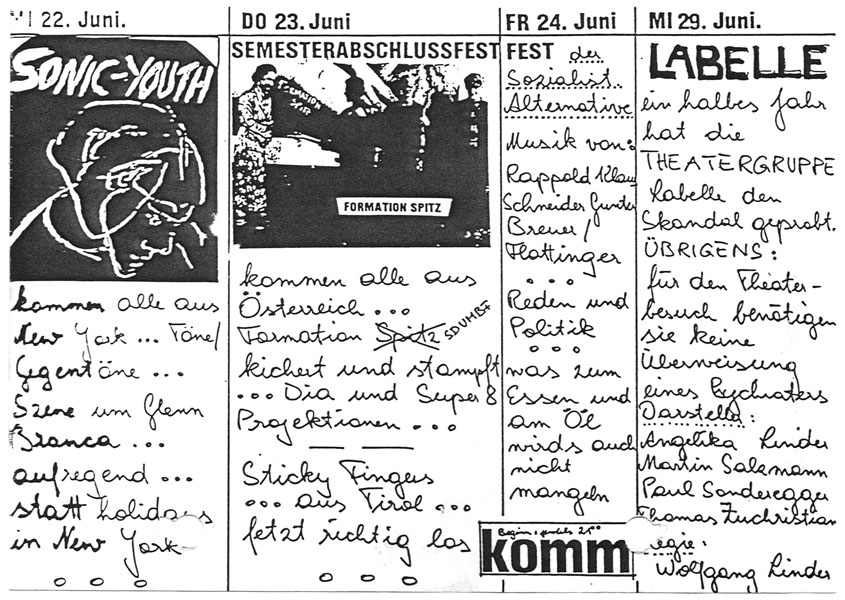 MI 22. Juni.
SONIC-YOUTH
kommen alle aus
New York ... Töne/
Gegentöne ...
Szene um Glenn
Branca ...
aufregend ...
statt holidays
in New York
DO 23. Juni
SEMESTERABSCHLUSSFEST
FORMATION SPITZ
FORMATION SPITZ
kommen alle aus
Österreich ...
Formation Spitz
kichert und stampft
... Dia und Super 8
Projektionen ...
Sticky Fingers
... aus Tirol ...
fetzt richtig los
FR 24. Juni
FEST der
Sozialist.
Alternative
Musik von:
Rappold Klaus
Schneider Gunter
Breuer/
Hattinger
Reden und
Politik
was zum
Essen und
am Öl
wirds auch
nicht
mangeln
Beginn: jeweils 21⁰⁰
komm
MI 29. Juni.
LABELLE
ein halbes Jahr
hat die
THEATERGRUPPE
Labelle den
Skandal geprobt.
ÜBRIGENS:
für den Theater-
besuch benötigen
sie keine
Überweisung
eines Psychiaters
Darstella:
Angelika Linder
Martin Salzmann
Paul Sonderegger
Thomas Fuchristian
regie:
Wolfgang Linder